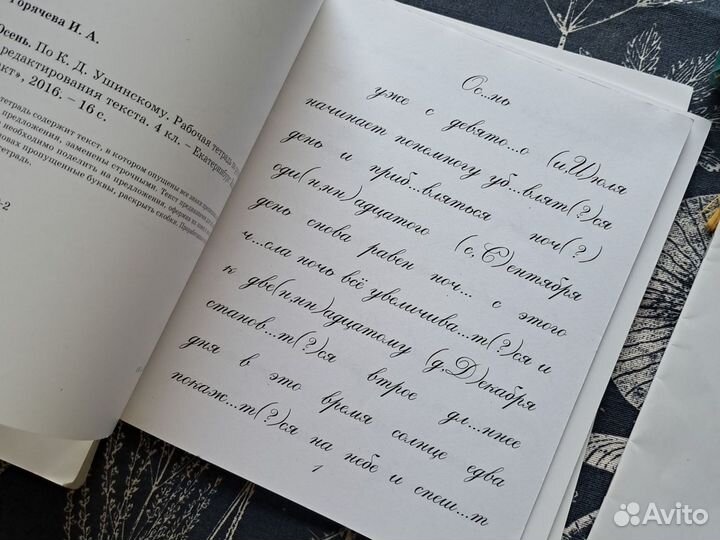 Горячева И. А.
Осень. По К. Д. Ушинскому. Рабочая тетрадь
редактирования текста. 4 кл. – Екатеринбург
2016. – 16 с.
тетрадь содержит текст, в котором опущены все знаки
предложения, заменены строчными. Текст
необходимо поделить на предложения,
пропущенные буквы, раскрыть скобки.
тетрадь.
-2
Ос...нь
уже с девято...о (и,И)юля
начинает понемногу уб...влят(?)ся
день и приб...вляться ноч(?)
оди(н,нн)адцатого (с,С)ентября
день снова равен ноч... с этого
ч...сла ночь всё увеличива...т(?)ся и
к две(н,нн)адцатому (д,Д)екабря
станов...т(?)ся втрое дл...ннее
дня в это время солнце едва
покаж...т(?)ся на небе и спеш...т
1
Avito